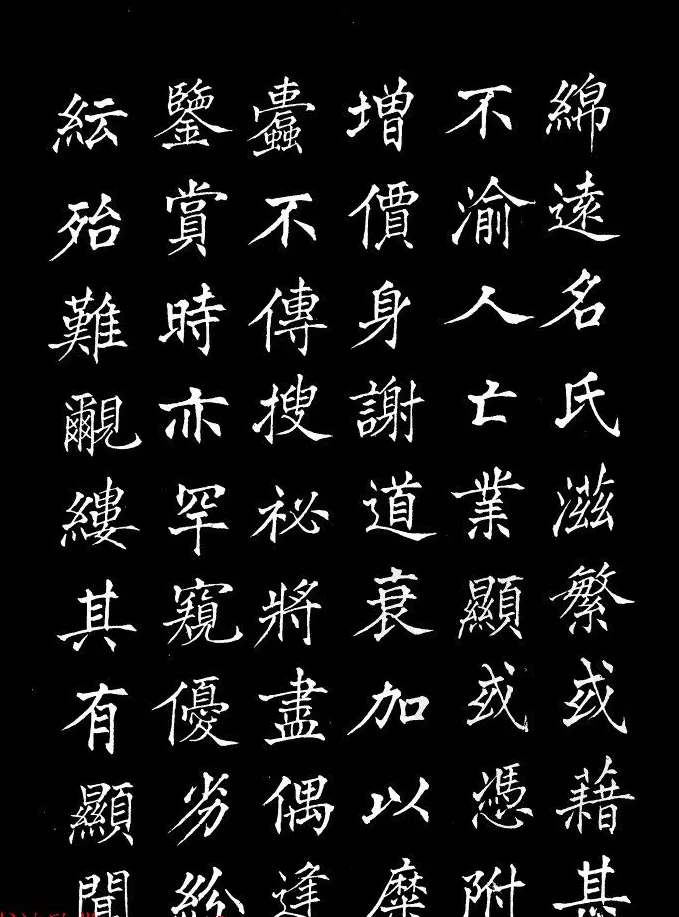 綿遠名氏滋繁或藉其
不渝人亡業顯或憑附
增價身謝道衰加以糜
蠹不傳搜祕將盡偶逢
鑒賞時亦罕窺優劣紛
紜殆難覼縷其有顯聞